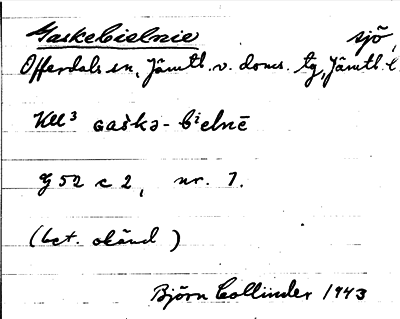 Gaskebielnie sjö,
Offerdals sn, Jämtl. v. doms. tg, Jämtl. l.
KU³ gaškə-bⁱelnē
G 52 c 2, nr. 7.
(bet. okänd)
Björn Collinder 1943